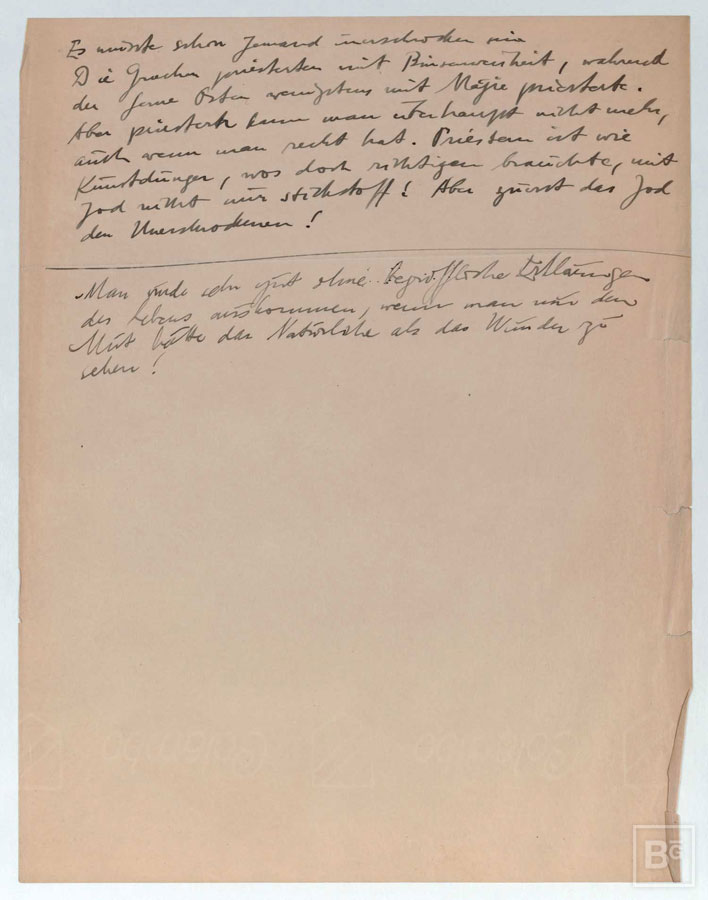 Es müsste schon Jemand unerschrocken sein
Die Griechen priesterten mit Binsenweisheit, während
der ferne Osten wenigstens mit Magie priesterte.
Aber priestern kann man überhaupt nicht mehr,
auch wenn man recht hat. Priestern ist wie
Kunstdünger, wos doch richtigen brauchte, mit
Jod nicht nur Stickstoff! Aber zuerst das Jod
den Unerschrockenen!
Man würde sehr gut ohne begriffliche Erklärungen
des Lebens auskommen, wenn man nur den
Mut hätte das Natürliche als das Wunder zu
sehen!
BG